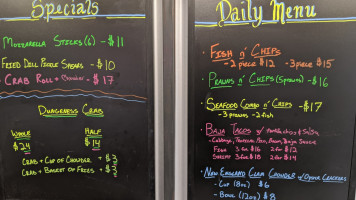 Specials
Mozzarella Sticks (6) - $11
Fried Dill Pickle Spears - $10
Crab Roll + - $17
Dungeness Crab
Whole Half
$24 $14
Crab + Cup of Chowder +
Crab + Basket of Fries +
Daily Menu
· Fish n' Chips
- 2 piece $12 - 3 piece $15
· Prawns n' Chips (5 prawns) - $16
· Seafood Combo n' Chips - $17
- 3 prawns - 2 fish
· Baja Tacos w/ & Salsa
- Cabbage, Baja Sauce
Fish 3 for $16 2 for $12
Shrimp 3 for $18 2 for $14
· New England Clam Chowder w/ Oyster Crackers
- Cup (8oz) $6
- Bowl (12oz) $8